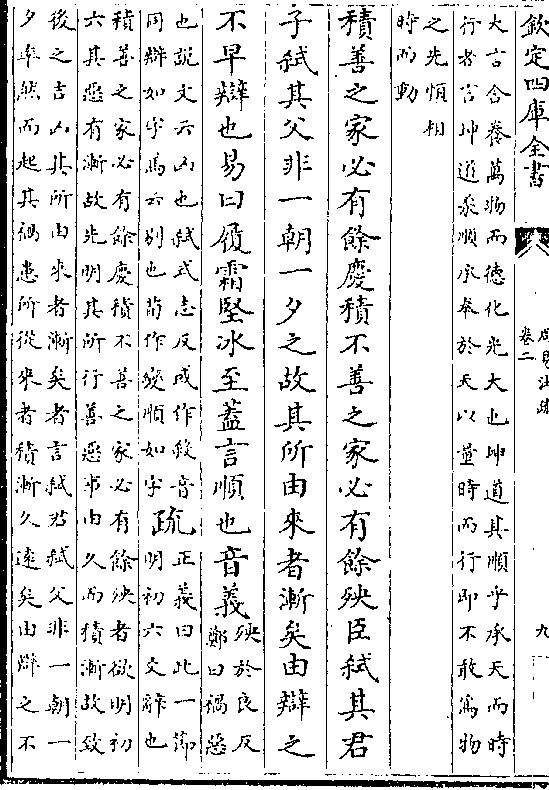 欽定四庫全書
周易注疏
卷二
九
大言含養萬物而德化光大也坤道其順乎承天而時
行者言坤道柔順承奉於天以量時而行即不敢為物
之先惟相
時而動
積善之家必有餘慶積不善之家必有餘殃臣弑其君
子弑其父非一朝一夕之故其所由來者漸矣由辯之
不早辯也易曰履霜堅冰至蓋言順也音義殃於良反
鄭曰禍惡
也說文云凶也弑式志反或作殺音
同辯如字馬云別也荀作變順如字疏正義曰此一節
明初六爻辭也
積善之家必有餘慶積不善之家必有餘殃者欲明初
六其惡有漸故先明其所行善惡事由久而積漸故致
後之吉凶其所由來者漸矣者言弑君弑父非一朝一
夕率然而起其禍患所從來者積漸久遠矣由辯之不